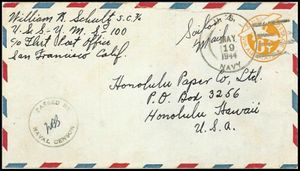 William N. Schultz S.C.2/c
U.S.S. Y.M.S. 100
c/o Fleet Post Office
San Francisco Calif.
MAY
19
1944
NAVY
Honolulu Paper Co., Ltd.
P.O. Box 3256
Honolulu Hawaii
U.S.A.
PASSED BY
NAVAL CENSOR